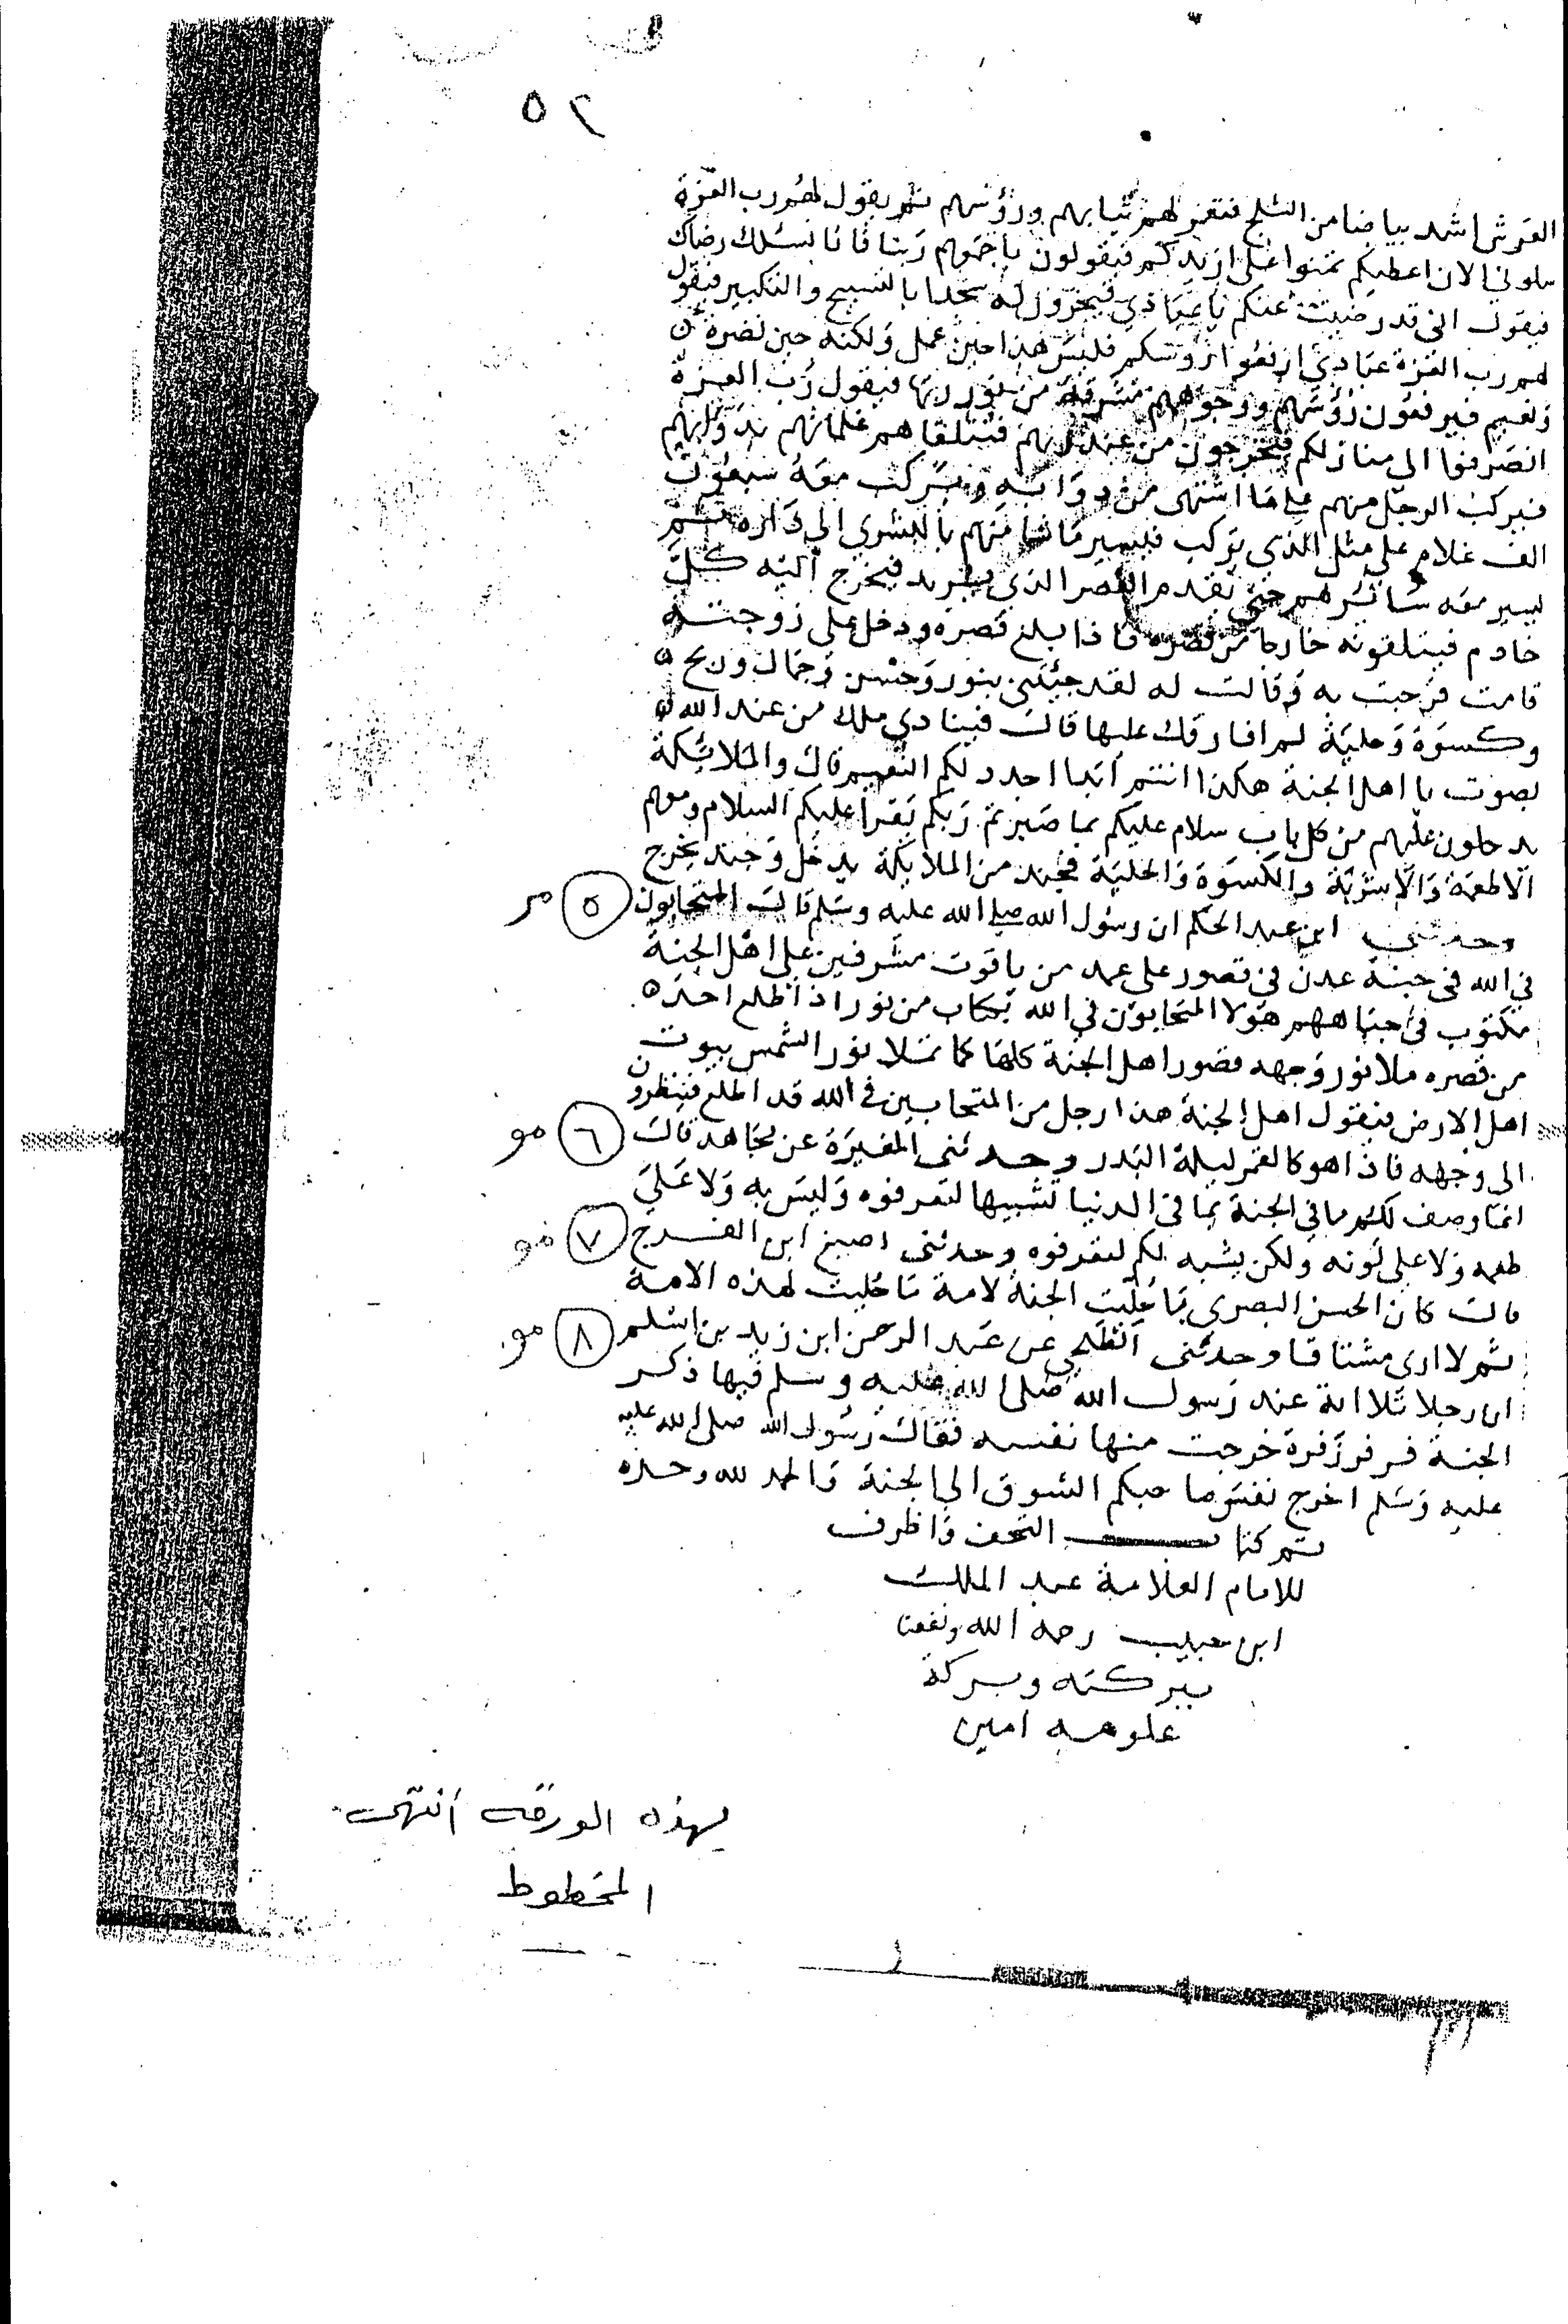 ٥٢
العرش اشد بياضا من الثلج فتغبر لهم ثيابهم ورؤسهم ثم يقول لهم رب العزة
سلوني الان اعطيكم تمنوا علي ازيدكم فيقولون باجمعهم ربنا فانا نسئلك رضاك
فيقول اني قد رضيت عنكم يا عبادي فيخرون له سجدا بالتسبيح والتكبير فيقول
لهم رب العزة عبادي ارفعوا رؤسكم فليس هذا حين عمل ولكنه حين نضرة
ونعيم فيرفعون رؤسهم ووجوههم مشرقة من نور ربها فيقول رب العزة
انصرفوا الى منازلكم فيخرجون من عند ربهم فتتلقاهم غلمانهم بدوابهم
فيركب الرجل منهم على ما اشتهى من دوابه ويركب معه سبعون
الف غلام على مثل الذي يركب فيسير ما شا منهم بالبشرى الى داره ثم
يسير معه سائرهم حتى يقدم القصر الذي يريد فيخرج اليه كل
خادم فيتلقونه خارجا من قصره فاذا بلغ قصره ودخل على زوجته
قامت فرحبت به وقالت له لقد جئتني بنور وحسن وجمال وريح
وكسوة وحلية لم افارقك عليها قال فينادي ملك من عند الله
بصوت يا اهل الجنة هكذا انتم ابدا اجدد لكم النعيم قال والملائكة
يدخلون عليهم من كل باب سلام عليكم بما صبرتم ربكم يقرا عليكم السلام ومعهم
الاطعمة والاشربة والكسوة والحلية فجند من الملايكة يدخل وجند يخرج
وحدثني ابن عبد الحكم ان رسول الله صلى الله عليه وسلم قال المتحابون ٥ مر
في الله في جنة عدن في قصور على عمد من ياقوت مشرفين على اهل الجنة
مكتوب في جباههم هولا المتحابون في الله بكتاب من نور اذا اطلع احده
من قصره ملا نور وجهه قصور اهل الجنة كلها كما تملا نور الشمس بيوت
اهل الارض فيقول اهل الجنة هذا رجل من المتحابين في الله قد اطلع فينظرون
الى وجهه فاذا هو كالقمر ليلة البدر وحدثني المغيرة عن مجاهد قال ٦ مو
انما وصف لكم ما في الجنة بما في الدنيا تشبيها لتعرفوه وليس به ولا على
طعمه ولا على لونه ولكن يشبه لكم لتعرفوه وحدثني اصبغ ابن الفرج ٧ مو
قال كان الحسن البصري ما حليت الجنة لامة ما حليت لهذه الامة
ثم لا ارى مشتاقا وحدثني الطلحي عن عبد الرحمن ابن زيد بن اسلم ٨ مو
ان رجلا تلا اية عند رسول الله صلى الله عليه وسلم فيها ذكر
الجنة فزفر زفرة خرجت منها نفسه فقال رسول الله صلى الله عليه
عليه وسلم اخرج نفس صاحبكم الشوق الى الجنة والحمد لله وحده
تم كتاب التحف واظرف
للامام العلامة عبد الملك
ابن حبيب رحمه الله ونفعنا
ببركته وبركة
علومه امين
بهذه الورقة انتهى
المخطوط